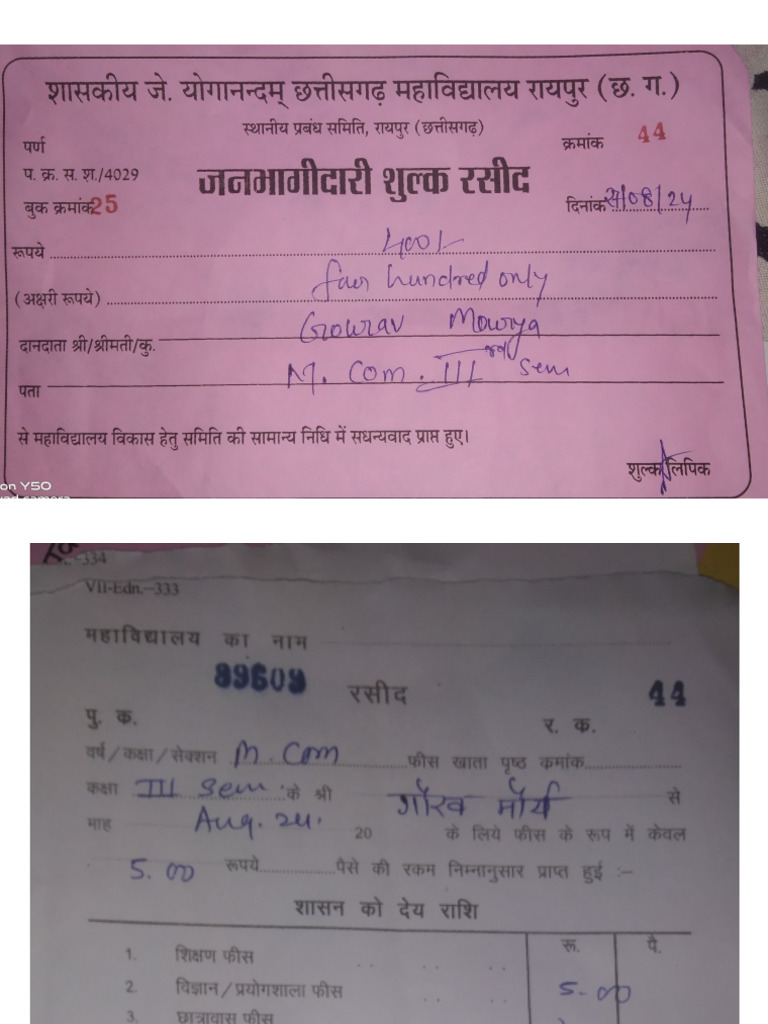 शासकीय जे. योगानन्दम् छत्तीसगढ़ महाविद्यालय रायपुर (छ. ग.)
स्थानीय प्रबंध समिति, रायपुर (छत्तीसगढ़)
पर्ण क्रमांक 44
प. क्र. स. श./4029
जनभागीदारी शुल्क रसीद
बुक क्रमांक 25 दिनांक /08/24
रूपये 400/-
(अक्षरी रूपये) four hundred only
दानदाता श्री/श्रीमती/कु. Gourav Mourya
पता M. Com. III sem
से महाविद्यालय विकास हेतु समिति की सामान्य निधि में सधन्यवाद प्राप्त हुए।
शुल्क लिपिक
on Y50
-334
VII-Edn.-333
महाविद्यालय का नाम
89609 रसीद 44
पु. क. र. क.
वर्ष/कक्षा/सेक्शन M. Com फीस खाता पृष्ठ क्रमांक
कक्षा III Sem के श्री गौरव मौर्य से
माह Aug. 24. 20 के लिये फीस के रूप में केवल
5.00 रूपये पैसे की रकम निम्नानुसार प्राप्त हुई :-
शासन को देय राशि
रू. पै.
1. शिक्षण फीस
2. विज्ञान/प्रयोगशाला फीस 5.00
3. छात्रावास फीस